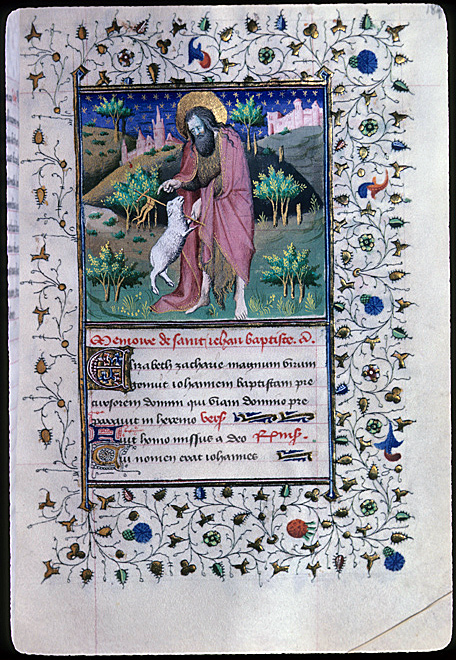 Memoire de saint Jehan baptiste. a.
Elizabeth zacharie magnum virum
genuit iohannem baptistam pre
cursorem domini qui viam domino pre
paravit in heremo vers
Fuit homo missus a deo Respons.
Cui nomen erat iohannes